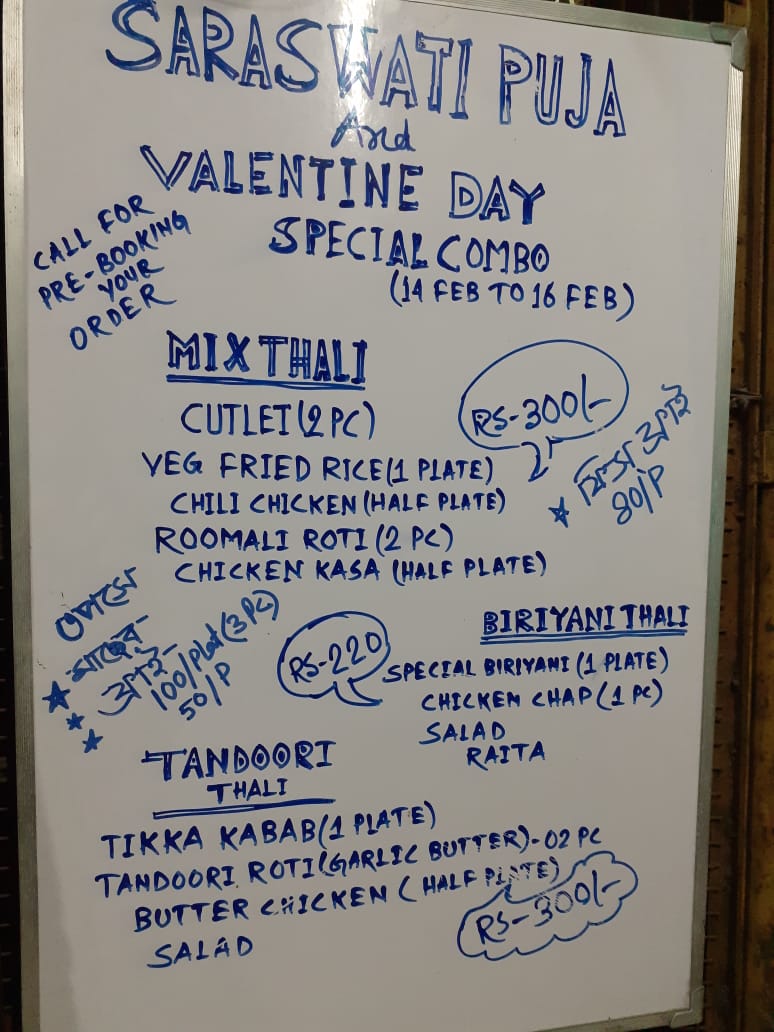 SARASWATI PUJA
And
VALENTINE DAY
SPECIAL COMBO
(14 FEB TO 16 FEB)
CALL FOR
PRE-BOOKING
YOUR
ORDER
MIX THALI
CUTLET (2 PC)
VEG FRIED RICE (1 PLATE)
CHILI CHICKEN (HALF PLATE)
ROOMALI ROTI (2 PC)
CHICKEN KASA (HALF PLATE)
RS-300/-
ফ্রাই
80/P
মাছের
ফ্রাই-
100/Plat (3 PC)
50/P
BIRIYANI THALI
RS-220
SPECIAL BIRIYANI (1 PLATE)
CHICKEN CHAP (1 PC)
SALAD
RAITA
TANDOORI
THALI
TIKKA KABAB (1 PLATE)
TANDOORI ROTI (GARLIC BUTTER)-02 PC
BUTTER CHICKEN (HALF PLATE)
SALAD
RS-300/-